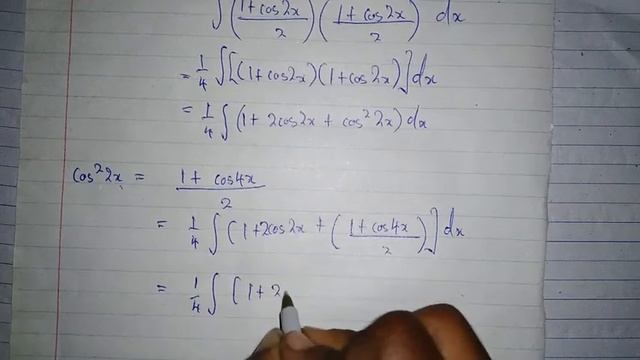 ∫ (1+cos2x/2) (1+cos2x/2) dx
= 1/4 ∫ [(1+cos2x)(1+cos2x)] dx
= 1/4 ∫ (1+ 2cos2x + cos² 2x) dx
cos²2x = 1 + cos4x / 2
= 1/4 ∫ (1+2cos2x + (1+cos4x/2)] dx
= 1/4 ∫ [1+ 2